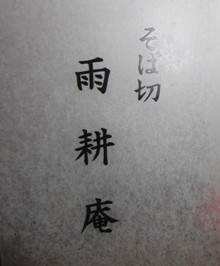 そば切
雨耕庵